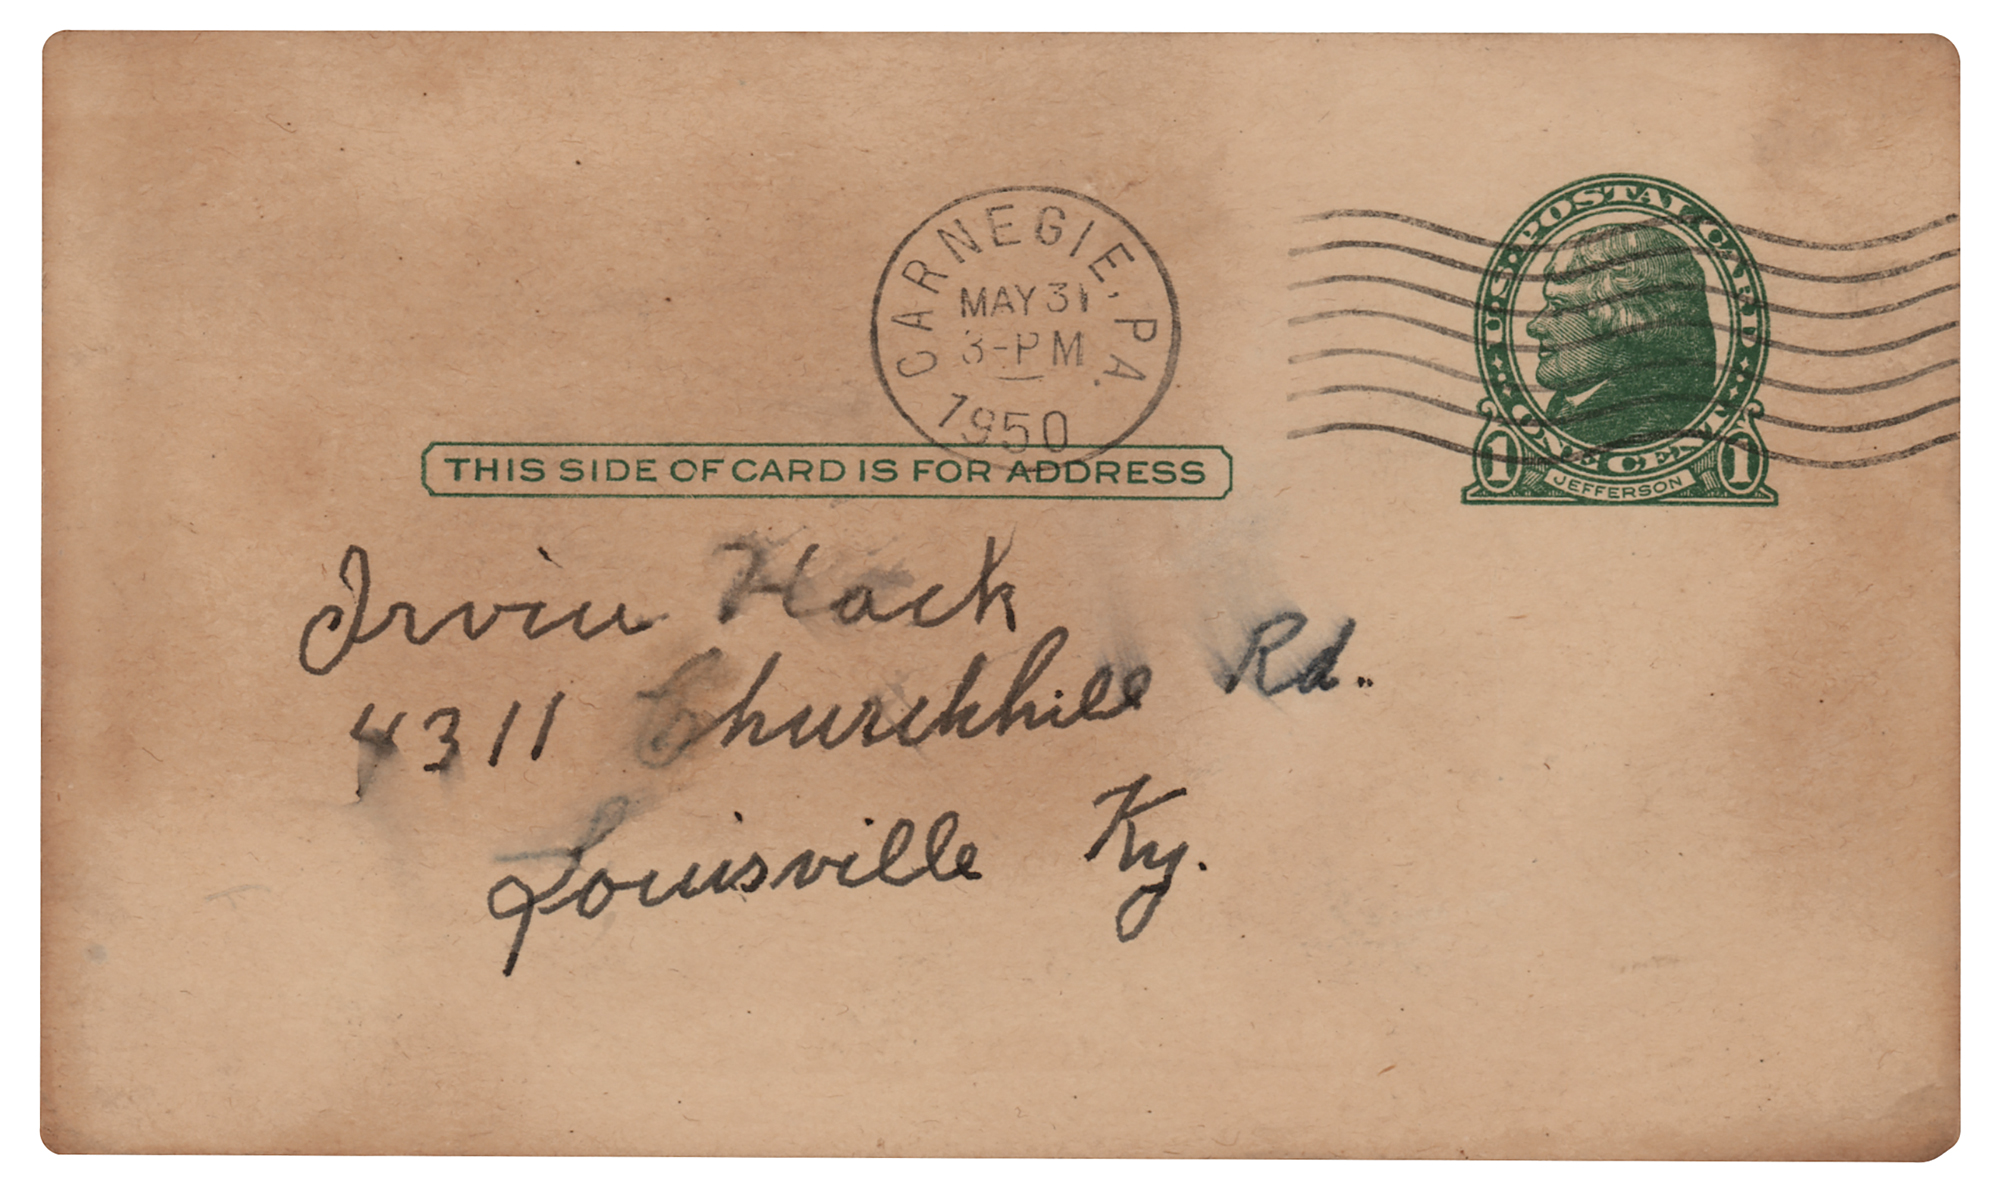 CARNEGIE, PA.
MAY 31
3-PM
1950
U.S. POSTAL CARD
ONE CENT
1 1
JEFFERSON
THIS SIDE OF CARD IS FOR ADDRESS
Irvin Hack
4311 Churckhill Rd.
Louisville Ky.